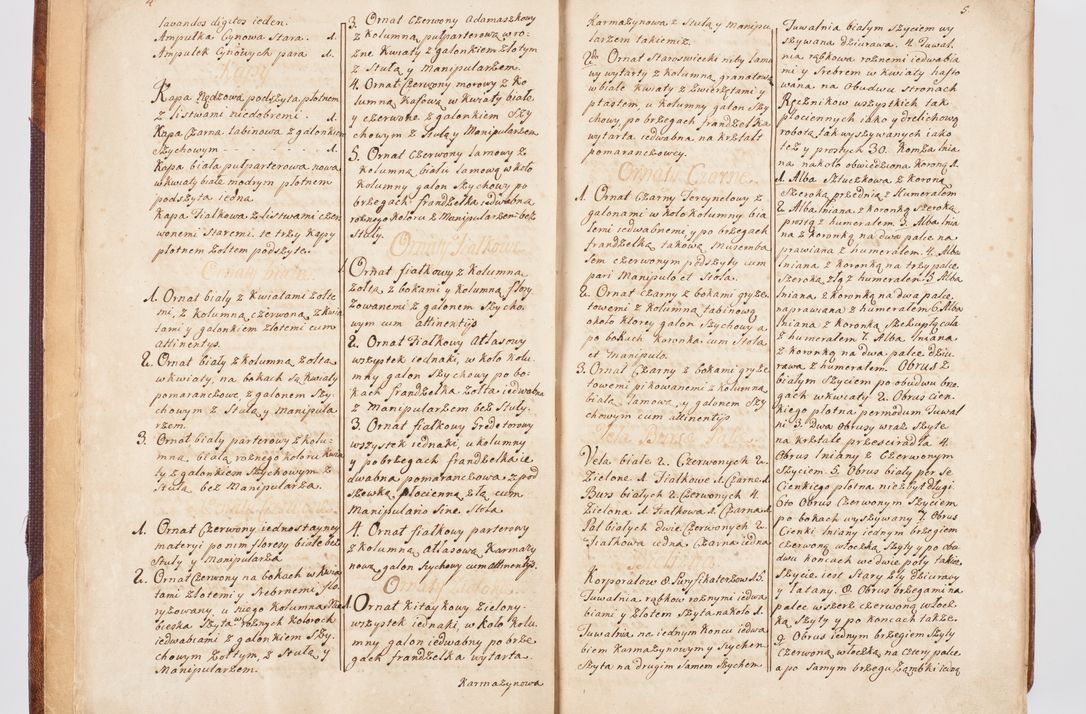 4
lavandos digitos ieden.
Ampułka Cynowa Stara. 1.
Ampułek Cynowych para 1.
Kapy
Kapa Nędzowa podszyta płotnem
z listwami niedobremi. 1.
Kapa Czarna tabinowa z galonkiem
Szychowym - - - - 1.
Kapa biała pułparterowa nowa
w kwiaty białe modrym płotnem
podszyta iedna
Kapa Fiałkowa z listwami czer
wonemi Staremi. te trzy Kapy
płotnem żołtem podszyte.
Ornaty białe
1. Ornat biały z kwiatami żołte
mi, z kolumną czerwoną z kwia
tami y galonkiem złotemi cum
attinentys.
2. Ornat biały z kolumną żołta
w kwiaty, na bokach są kwiaty
pomaranczowe z galonem Szy
chowym z Stułą y Manipula
rzem.
3. Ornat biały parterowy z kolu
mną, białą rożnego koloru kwia
ty z galonkiem Szychowym z
Stułą bez Manipularza.
1. Ornat Czerwony iednostayney
materyi po nim floresy białe bez
Stuły y Manipularza
2. Ornat Czerwony na bokach w kwia
tami złotemi y Srebrnemi flo
ryzowany, u niego kolumna Nie
bieska Szyta w rożnych kolorach
iedwabiami z galonkiem Szy
chowym żołtym, z Stułą y
Manipularzem.
3. Ornat Czerwony Adamaszkowy
z kolumną pułparterową w ro
żne kwiaty z galonkiem złotym
z Stułą y Manipularzem.
4. Ornat Czerwony morowy z Ko
lumną kafową w kwiaty białe
y czerwone z galonkiem Szy
chowym z Stułą y Manipularzem
5. Ornat Czerwony lamowy z
Kolumną białą lamową w koło
kolumny galon Szychowy po
brzegach frandzelka iedwabna
rożnego koloru z Manipularzem bez
Stuły.
Ornaty Fiałkowe
1. Ornat fiałkowy z kolumną
żołtą, z bokami y kolumną flory
zowanemi z galonem Szycho
wym cum attinentys
2. Ornat Fiałkowy Atłasowy
wszystek iednaki, w koło kolu
mny galon Szychowy po bo
kach frandzelka żołta iedwabna
z Manipularzem bez Stuły.
3. Ornat fiałkowy Gredetorowy
wszystek iednaki, u kolumny
y po brzegach frandzelka ie
dwabna pomaranczowa z pod
szewką płocienną złą cum
Manipulario Sine Stola
4. Ornat fiałkowy parterowy
z kolumną Atłasową Karmazy
nową galon Szychowy cum attinentys.
Ornaty zielone
1. Ornat kitaykowy zielony
wszystek iednaki, w koło kolu
mny galon iedwabny po brze
gach frandzelka wytarta
Karmazynowa
5.
Karmazynowa z Stułą y Manipu
larzem takiemiz.
2do Ornat Staroswiecki niby lamo
wy wytarty z kolumną granatową
w białe kwiaty z zwierzętami y
ptastem, u kolumny galon Szy
chowy, po brzegach frandzelka
wytarta iedwabna na kształt
pomaranczowey.
Ornaty Czarne
1. Ornat Czarny Tercynelowy z
galonami w koło kolumny bia
łemi iedwabnemi, y po brzegach
frandzelką takową Musemba
lem czerwonym podszyty cum
pari Manipulo et Stola.
2. Ornat czarny z bokami gryze
towemi z kolumną tabinową
około ktorey galon Szychowy a
po bokach koronka cum Stola
et Manipulo.
3. Ornat Czarny z bokami gryze
towemi pikowanemi z kolumną
białą lamową, y galonem Szy
chowym cum attinentys
Vela Bursy Palki
Vela białe 2. Czerwonych 2.
Zielone 1. Fiałkowe 1. Czarne 1.
Burs białych 2. Czerwonych 4.
Zielona 1. Fiałkowa 1. Czarna 1.
Pal białych dwie Czerwonych 2.
Fiałkowa iedna Czarna iedna
Korporałow 8. Puryfikaterzow 15.
Tuwalnia rąbkow rożnymi iedwa
biami y złotem Szyta nakoło 1.
Tuwalnia na iednym końcu iedwa
biem Karmazynowym y Szychem
Szyta na drugim Samem Szychem
Tuwalnia białym Szyciem wy
szywana dziurawa. 4. Tuwal
nia rąbkowa rożnemi iedwabia
mi y Srebrem w kwiaty hafto
wana na Obudwu stronach
Ręcznikow wszystkich tak
płociennych iako y drelichową
robotą tak wyszywanych iako
też y prostych 30. Komża lnia
na nakoło obwiedziona koroną 1.
1. Alba Szluczkowa z koroną
Szeroką przednią z Humerałem
2. Alba lniana z koronką Szeroką
prostą z humerałem. 3. Alba lnia
na z koronką na dwa palce na
prawiana z humerałem. 4. Alba
lniana z koronką na trzy palce
Szeroką złą z humerałem. 5 Alba
lniana, z koronką na dwa palce
naprawiana z humerałem 6. Alba
lniana z koronką Szekuplą całą
z humerałem 7. Alba lniana
z koronką na dwa palce dziu
rawa z humerałem. Obrus z
białym Szyciem po obudwu brze
gach w kwiaty 2. Obrus cien
kiego płotna permodum Tuwal
ni 3. Dwa Obrusy wraz Szyte
na kształt przescieradła 4.
Obrus lniany z Czerwonym
Szyciem 5. Obrus biały per se
Cienkiego płotna nie zbyt długi
6to Obrus Czerwonym Szyciem
po bokach wyszywany 7. Obrus
Cienki lniany iednym brzegiem
Czerwoną włoczką Szyty y po obu
dwu końcach we dwie poły takie
Szycie iest Stary zły dziurawy
y łatany. 8. Obrus brzegami na
palec w szerz czerwoną włocz
ką Szyty y po końcach także.
9. Obrus iednym brzegiem Szyty
Czerwoną włoczką na cztery palce
a po Samym brzegu ząbki iedną